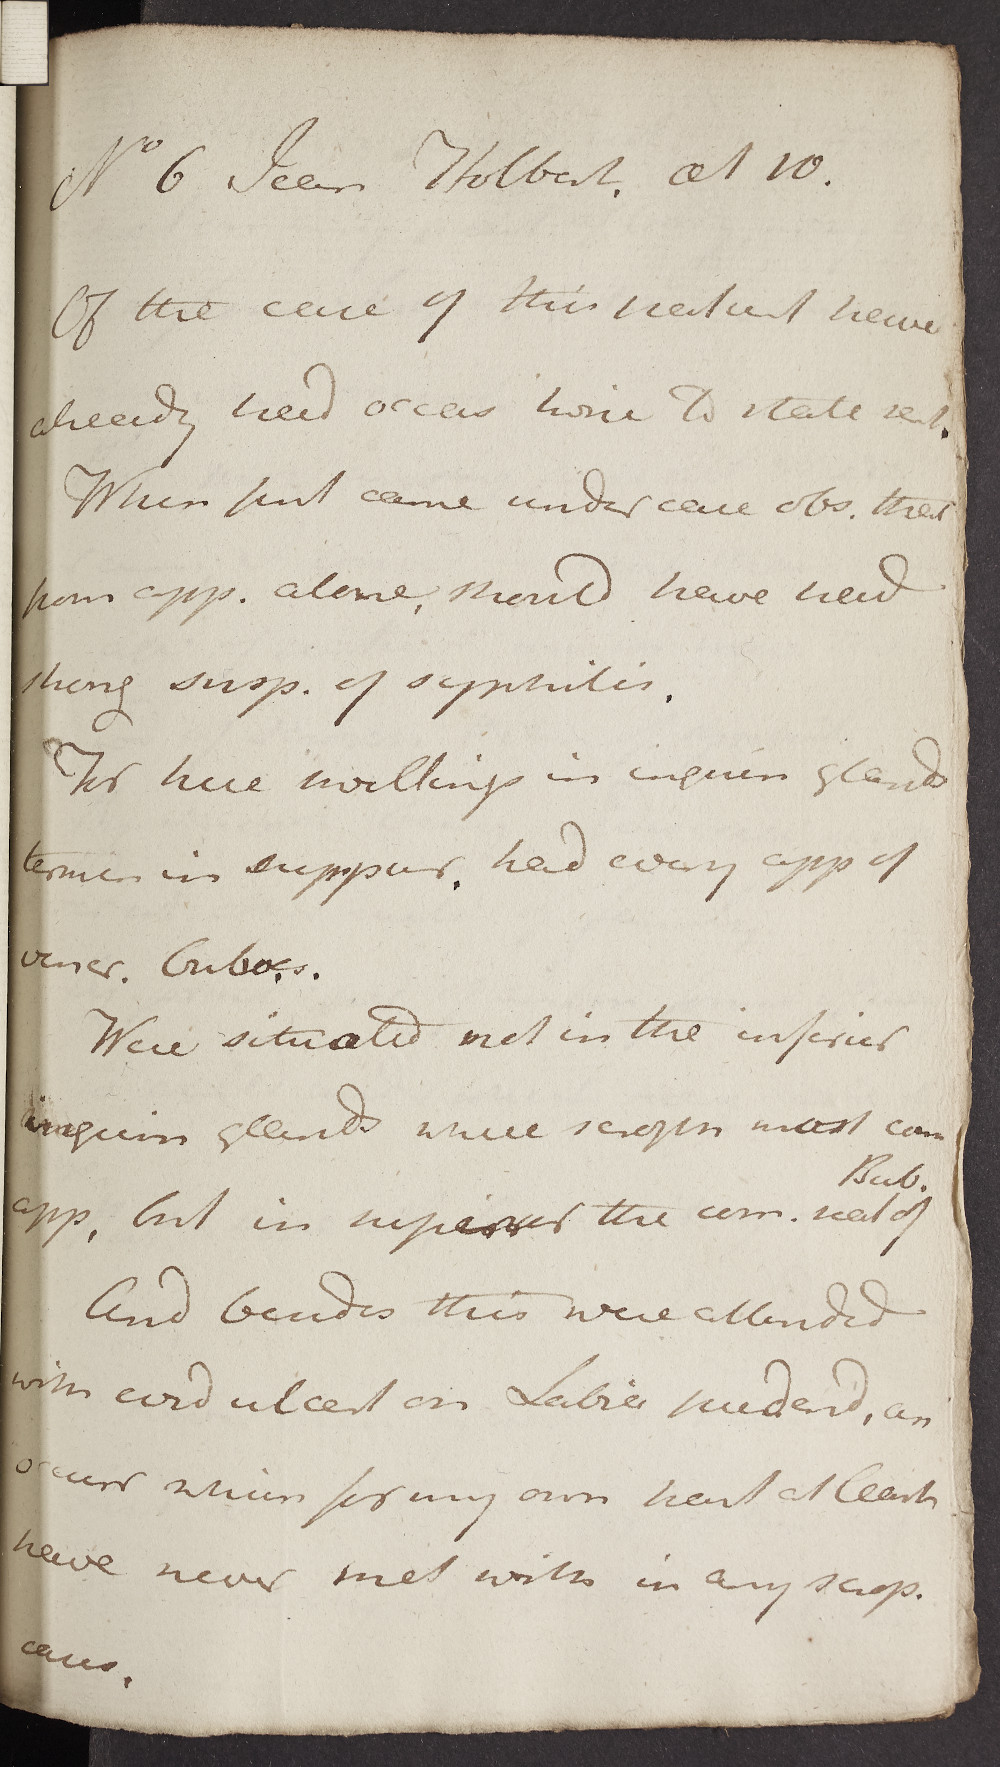 No 6 Jean Holbert. æt 10.
Of the case of this patient have
already had occas twice to state sent.
When first came under care obs. that
from app. alone, should have had
strong susp. of syphilis.
For here swellings in inguin glands
termin in suppur. had every app of
vener. buboes.
Were situated not in the inferior
inguin glands where scroph most com
app, but in superior the com. seat of Bub.
And besides this were attended
with evid ulcerat on Labia pudend, an
occurr which for my own part at least
have never met with in any scrop.
cases.